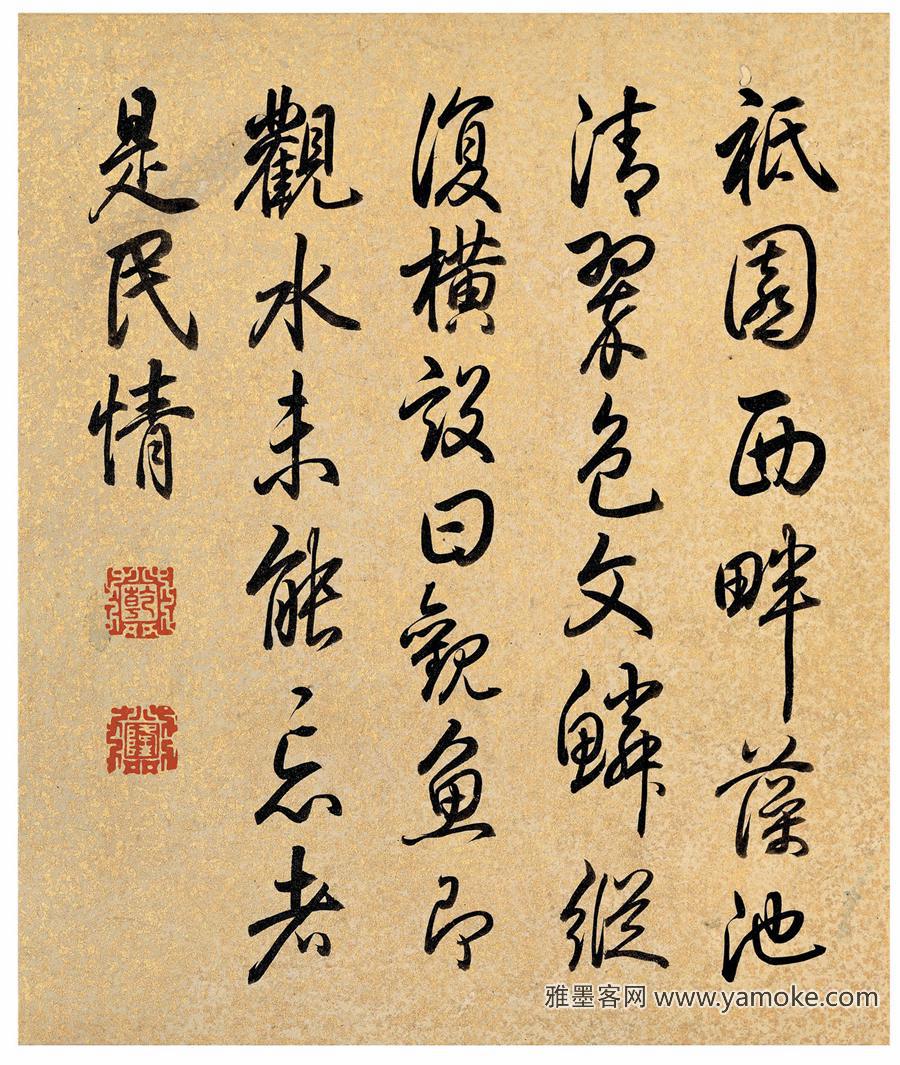 祗園西畔藻池
清翠色文鱗縱
復橫設曰觀魚即
觀水未能忘者
是民情
乾
隆
雅墨客网 www.yamoke.com